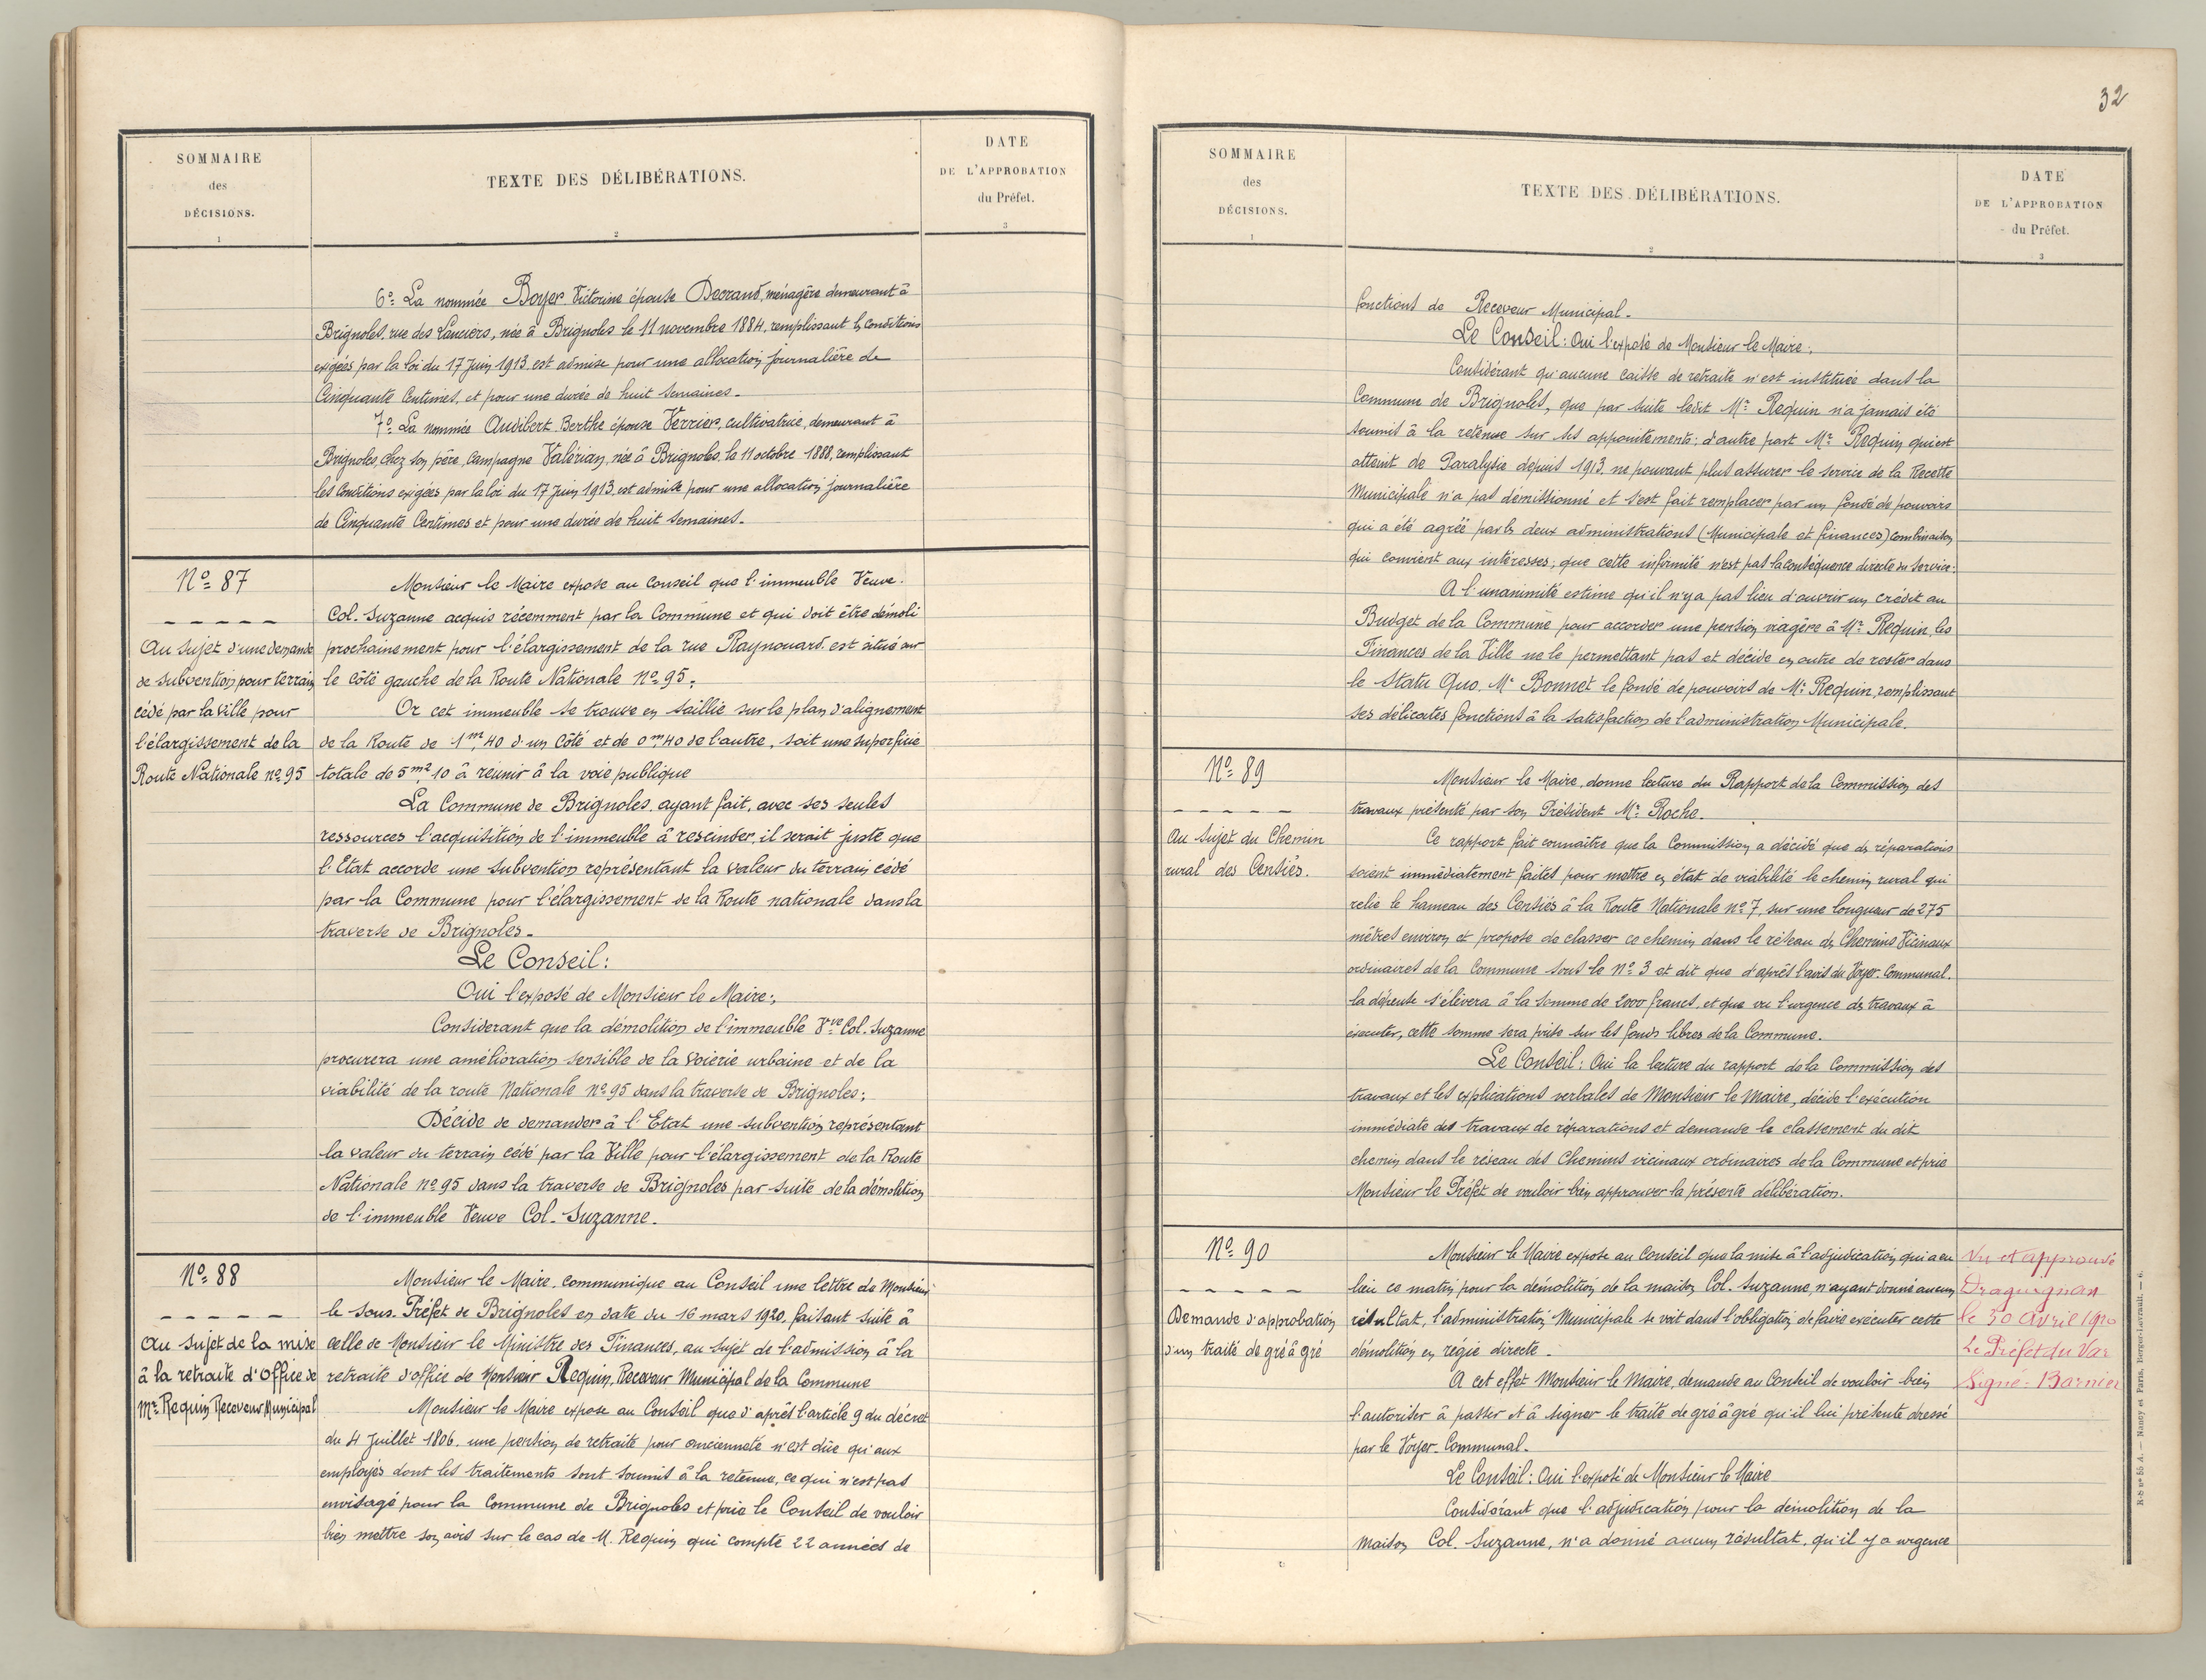 SOMMAIRE
des
DÉCISIONS.
1
TEXTE DES DÉLIBÉRATIONS.
2
DATE
DE L'APPROBATION
du Préfet.
3
6º La nommée Boyer Victorine épouse Decrand, ménagère demeurant à
Brignoles, rue des Lanciers, née à Brignoles le 11 novembre 1884, remplissant les conditions
exigées par la loi du 17 Juin 1913 est admise pour une allocation journalière de
Cinquante Centimes, et pour une durée de huit semaines.
7º La nommée Audibert Berthe épouse Verrier, cultivatrice, demeurant à
Brignoles, chez son père, campagne Valérian, née à Brignoles, le 11 octobre 1888, remplissant
les conditions exigées par la loi du 17 Juin 1913, est admise pour une allocation journalière
de Cinquante Centimes et pour une durée de huit semaines.
Nº 87
Au sujet d'une demande
de subvention pour terrain
cédé par la ville pour
l'élargissement de la
Route Nationale nº 95
Monsieur le Maire expose au Conseil que l'immeuble Veuve
Col. Suzanne acquis récemment par la Commune et qui doit être démoli
prochainement pour l'élargissement de la rue Raynouard est situé sur
le côté gauche de la Route Nationale Nº 95.
Or cet immeuble se trouve en saillie sur le plan d'alignement
de la Route de 1m,40 d'un côté et de 0m,40 de l'autre, soit une superficie
totale de 5m2,10 à réunir à la voie publique
La Commune de Brignoles ayant fait, avec ses seules
ressources l'acquisition de l'immeuble à rescinder, il serait juste que
l'Etat accorde une subvention représentant la valeur du terrain cédé
par la Commune pour l'élargissement de la Route nationale dans la
traverse de Brignoles.
Le Conseil:
Oui l'exposé de Monsieur le Maire;
Considerant que la démolition de l'immeuble Vve Col. Suzanne
procurera une amélioration sensible de la Voierie urbaine et de la
viabilité de la route Nationale nº 95 dans la traverse de Brignoles;
Décide de demander à l'Etat une subvention représentant
la valeur du terrain cédé par la Ville pour l'élargissement de la Route
Nationale nº 95 dans la traverse de Brignoles par suite de la démolition
de l'immeuble Veuve Col. Suzanne.
Nº 88
Au sujet de la mise
à la retraite d'office de
Mr Requin Receveur Municipal
Monsieur le Maire communique au Conseil une lettre de Monsieur
le Sous-Préfet de Brignoles en date du 16 mars 1920, faisant suite à
celle de Monsieur le Ministre des Finances, au sujet de l'admission à la
retraite d'office de Monsieur Requin, Receveur Municipal de la Commune
Monsieur le Maire expose au Conseil que d'après l'article 9 du décret
du 4 Juillet 1806, une pension de retraite pour ancienneté n'est dûe qu'aux
employés dont les traitements sont soumis à la retenue, ce qui n'est pas
envisagé pour la Commune de Brignoles et prie le Conseil de vouloir
bien mettre son avis sur le cas de M. Requin qui compte 22 années de
32
SOMMAIRE
des
DÉCISIONS.
1
TEXTE DES DÉLIBÉRATIONS.
2
DATE
DE L'APPROBATION
du Préfet.
3
fonctions de Receveur Municipal.
Le Conseil: Oui l'exposé de Monsieur le Maire;
Considérant qu'aucune caisse de retraite n'est instituée dans la
Commune de Brignoles, que par suite ledit Mr Requin n'a jamais été
soumis à la retenue sur ses appointements; d'autre part Mr Requin qui est
atteint de Paralysie depuis 1913 ne pouvant plus assurer le service de la Recette
Municipale n'a pas démissionné et s'est fait remplacer par un fondé de pouvoirs
qui a été agréé par les deux administrations (Municipale et finances) combinaison
qui convient aux intéressés; que cette infirmité n'est pas la conséquence directe du service:
A l'unanimité estime qu'il n'y a pas lieu d'ouvrir un crédit au
Budget de la Commune pour accorder une pension viagère à Mr Requin, les
Finances de la Ville ne le permettant pas et décide en outre de rester dans
le Statu Quo, Mr Bonnet le fondé de pouvoirs de Mr Requin, remplissant
ses délicates fonctions à la satisfaction de l'administration Municipale.
Nº 89
Au sujet du Chemin
rural des Censiés.
Monsieur le Maire, donne lecture du Rapport de la Commission des
travaux présenté par son Président Mr Roche.
Ce rapport fait connaître que la Commission a décidé que des réparations
soient immédiatement faites pour mettre en état de viabilité le chemin rural qui
relie le hameau des Censiés à la Route Nationale nº 7, sur une longueur de 275
mètres environ et propose de classer ce chemin dans le réseau des Chemins Vicinaux
ordinaires de la Commune sous le Nº 3 et dit que d'après l'avis du Voyer-Communal,
la dépense s'élèvera à la somme de 2000 francs, et que vu l'urgence des travaux à
éxecuter, cette somme sera prise sur les fonds libres de la Commune.
Le Conseil: Oui la lecture du rapport de la Commission des
travaux et les explications verbales de Monsieur le Maire, décide l'exécution
immédiate des travaux de réparations et demande le classement du dit
chemin dans le réseau des Chemins vicinaux ordinaires de la Commune et prie
Monsieur le Préfet de vouloir bien approuver la présente délibération.
Nº 90
Demande d'approbation
d'un traité de gré à gré
Monsieur le Maire expose au Conseil que la mise à l'adjudication qui a eu
lieu ce matin pour la démolition de la maison Col. Suzanne, n'ayant donné aucun
résultat, l'administration Municipale se voit dans l'obligation de faire exécuter cette
démolition en régie directe.
A cet effet Monsieur le Maire, demande au Conseil de vouloir bien
l'autoriser à passer et à signer le traité de gré à gré qu'il lui présente dressé
par le Voyer-Communal.
Le Conseil: Oui l'exposé de Monsieur le Maire
Considérant que l'adjudication pour la démolition de la
maison Col. Suzanne, n'a donné aucun résultat, qu'il y a urgence
Vu et approuvé
Draguignan
le 30 Avril 1920
Le Préfet du Var
Signé: Barnier
N-S nº 55 A. — Nancy et Paris, Berger-Levrault. — 6.